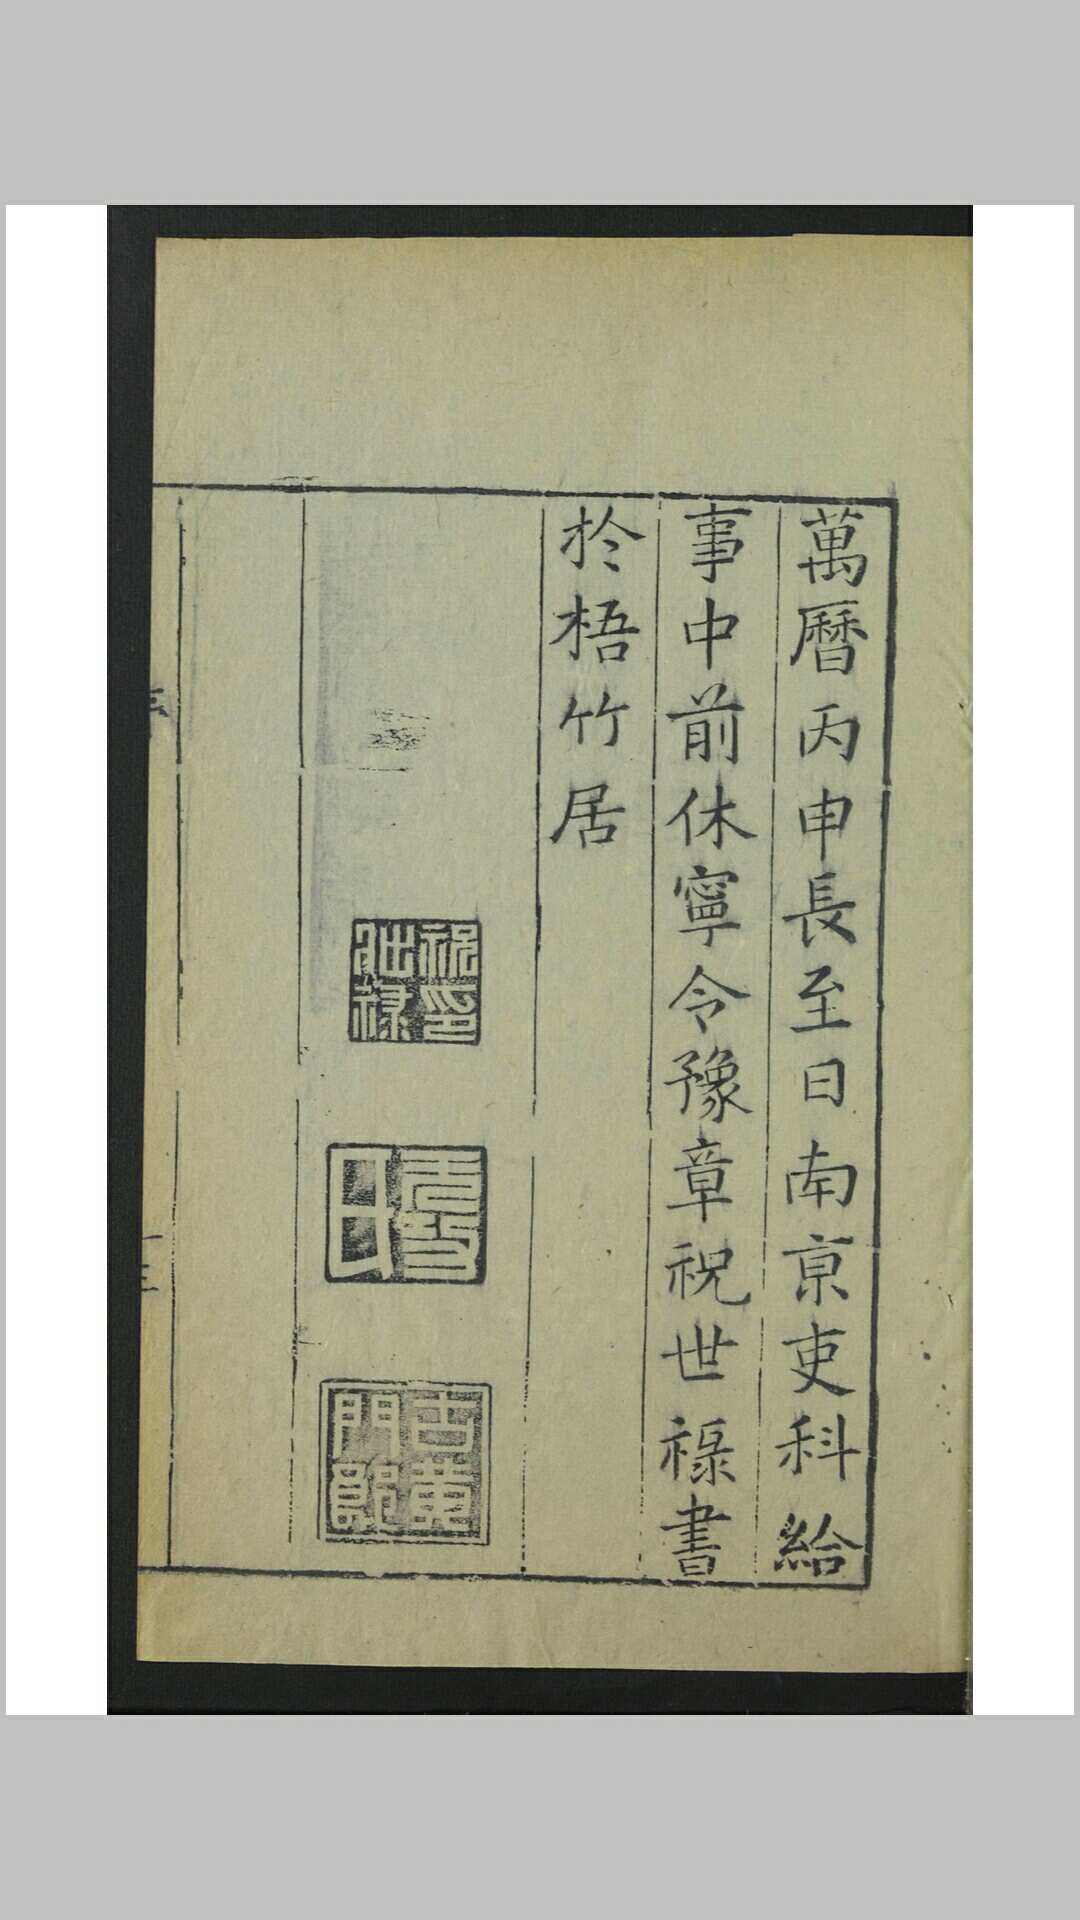 萬曆丙申長至日南京吏科給
事中前休寧令豫章祝世祿書
於梧竹居
祝印世祿
元功氏
古黃門郎